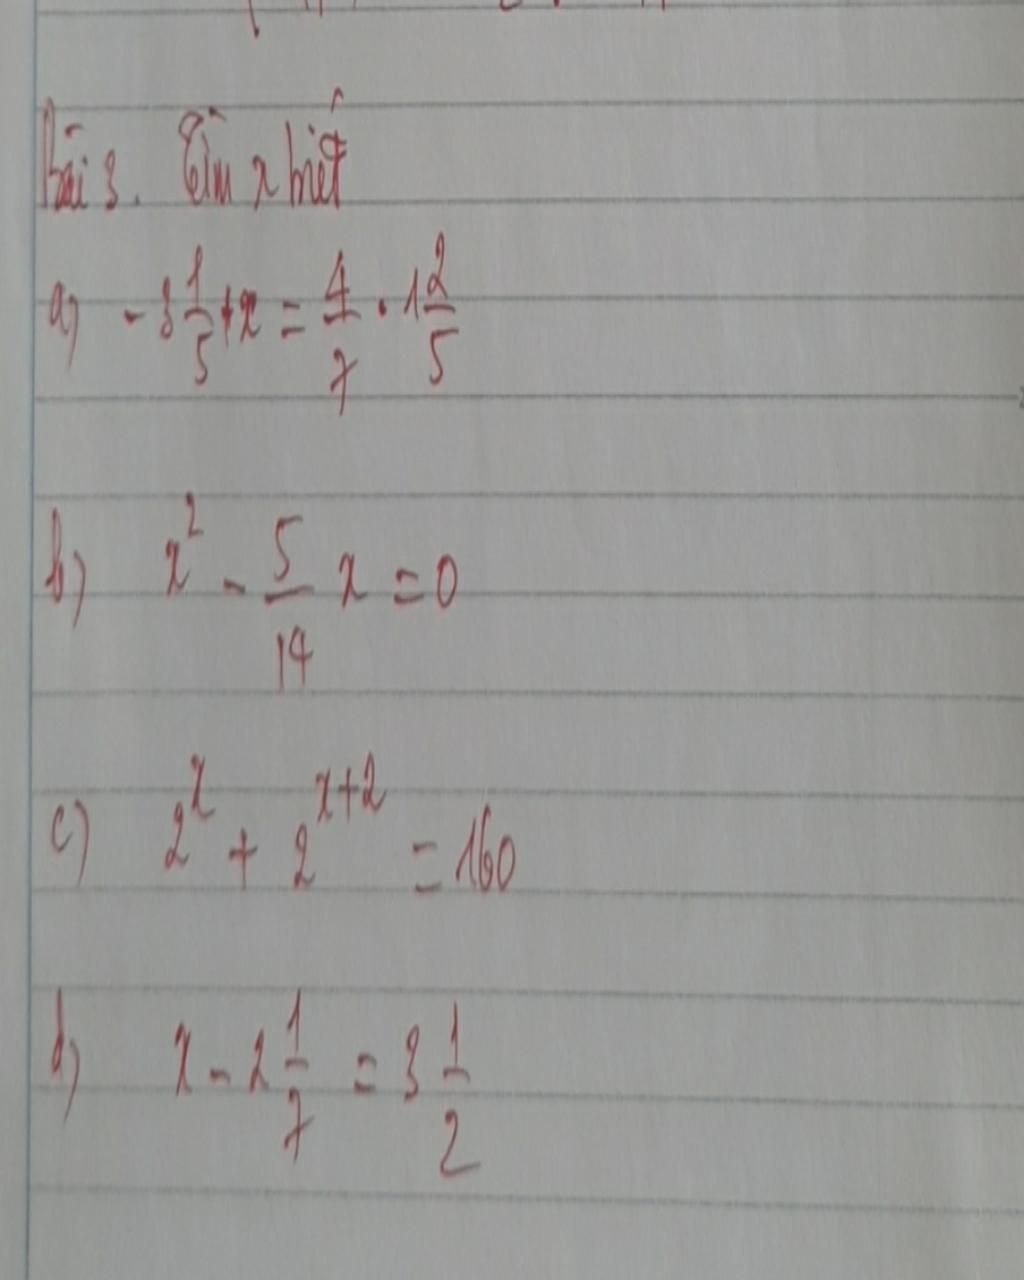 Bài 3. Tìm x biết
a) -3 1/5 + x = 4/7 . 1 2/5
b) x² - 5/14 x = 0
c) 2^x + 2^(x+2) = 160
d) x - 2 1/7 = 3 1/2